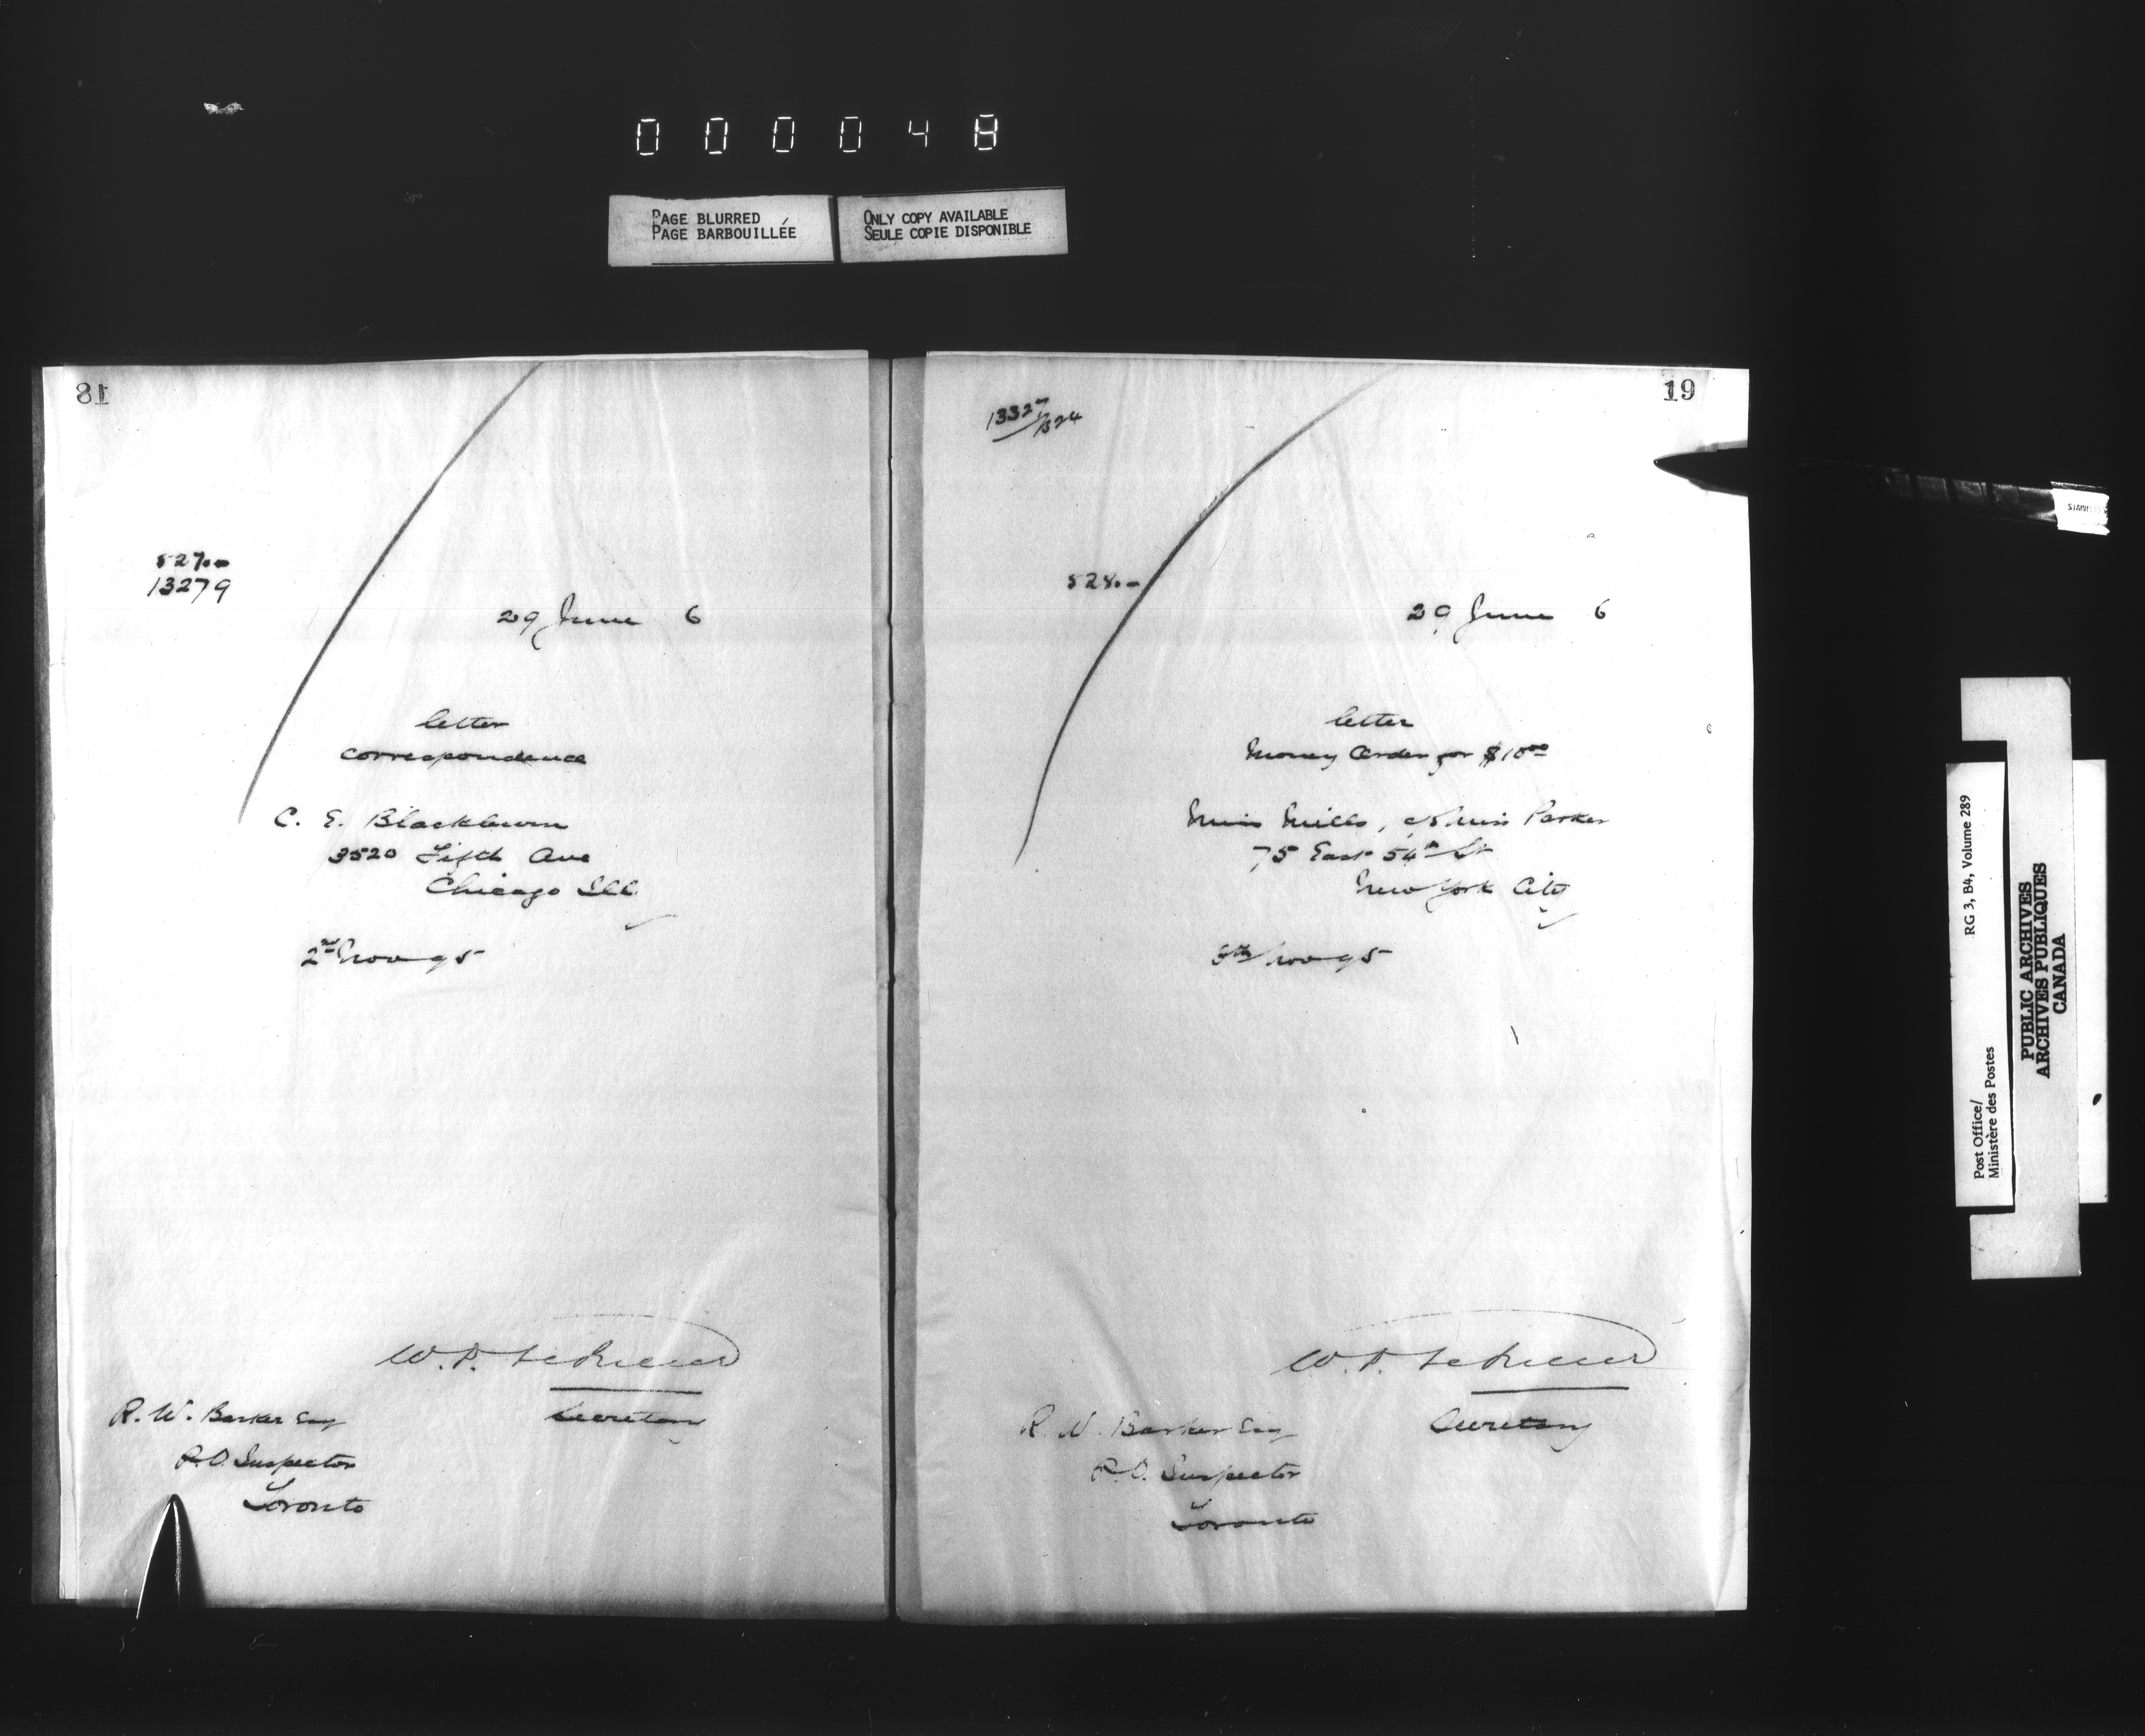 000048
PAGE BLURRED
PAGE BARBOUILLÉE
ONLY COPY AVAILABLE
SEULE COPIE DISPONIBLE
18
527.
13279
29 June 6
letter
correspondence
C. E. Blackburn
3520 Fifth Ave
Chicago Ill
2nd Nov 95
W.D.
Secretary
R. W. Barker Esq
P.O. Inspector
Toronto
19
13327/
528.-
29 June 6
letter
Money Order for $10.00
Miss Mills, c/o Miss Parker
75 East 54th St
New York City
Nov 95
W.D.
Secretary
R. W. Barker Esq
P.O. Inspector
Toronto
Post Office/
Ministère des Postes
RG 3, B4, Volume 289
PUBLIC ARCHIVES
ARCHIVES PUBLIQUES
CANADA